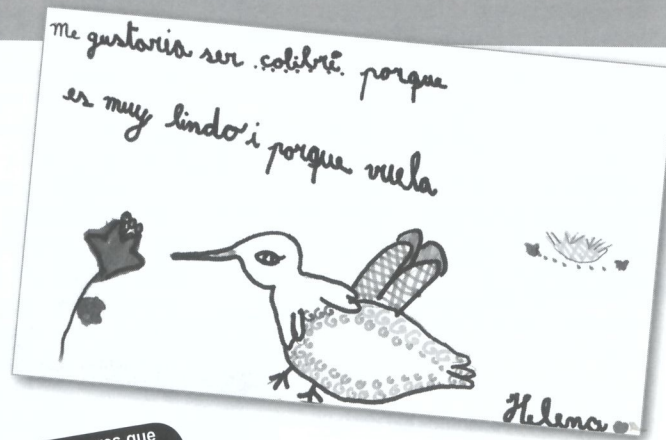 Me gustaria ser colibrí porque
es muy lindo i porque vuela
Helena
que